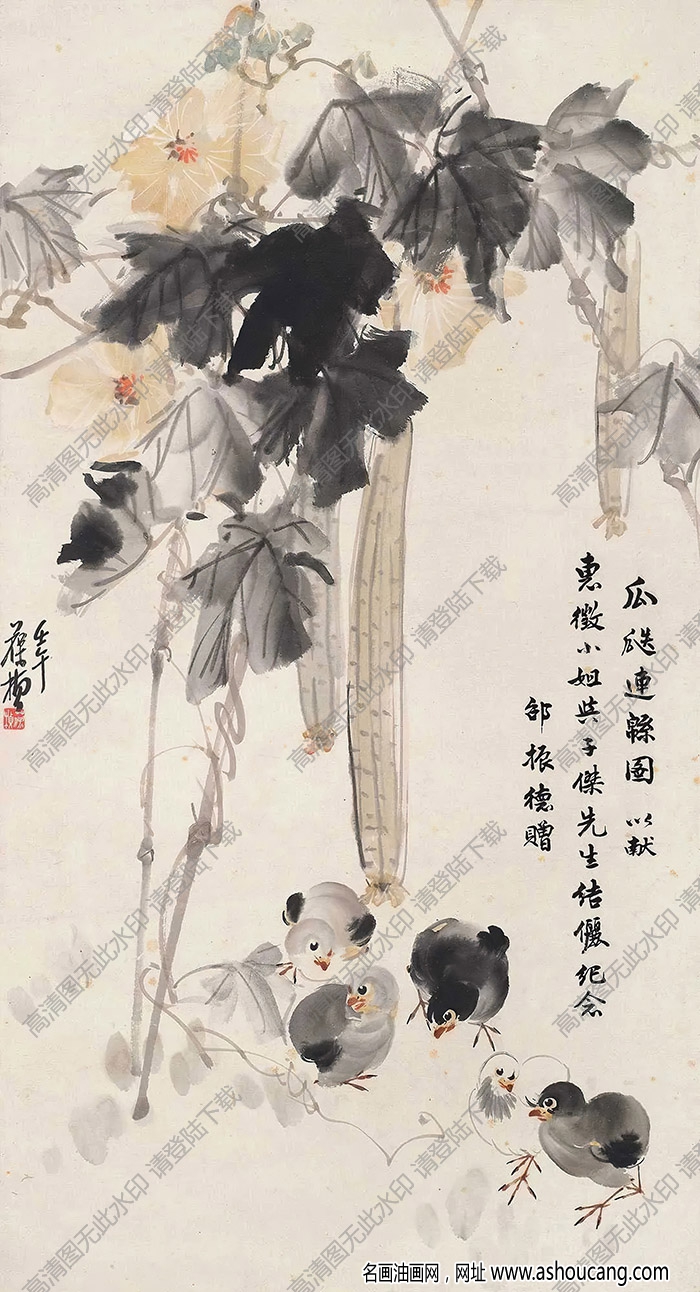 瓜瓞連緜图 以献
惠徵小姐與子傑先生结儷纪念
邵振德贈
壬午
葆楨
高清图无此水印 请登陆下载
名画油画网，网址 www.ashoucang.com